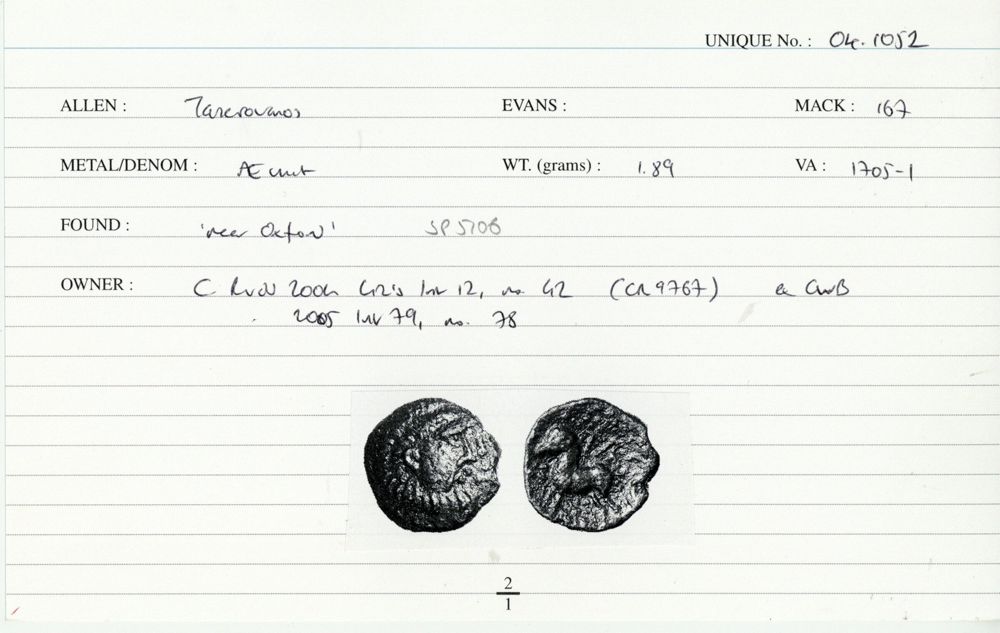 UNIQUE No. : 04.1052
ALLEN : Tasciovanos EVANS : MACK : 167
METAL/DENOM : Æ unit WT. (grams) : 1.89 VA : 1705-1
FOUND : 'near Oxford' SP 5106
OWNER : C Rudd 2004 Liz's List 12, no. 42 (CR 9767) ex
2005 list 79, no. 78
2
1